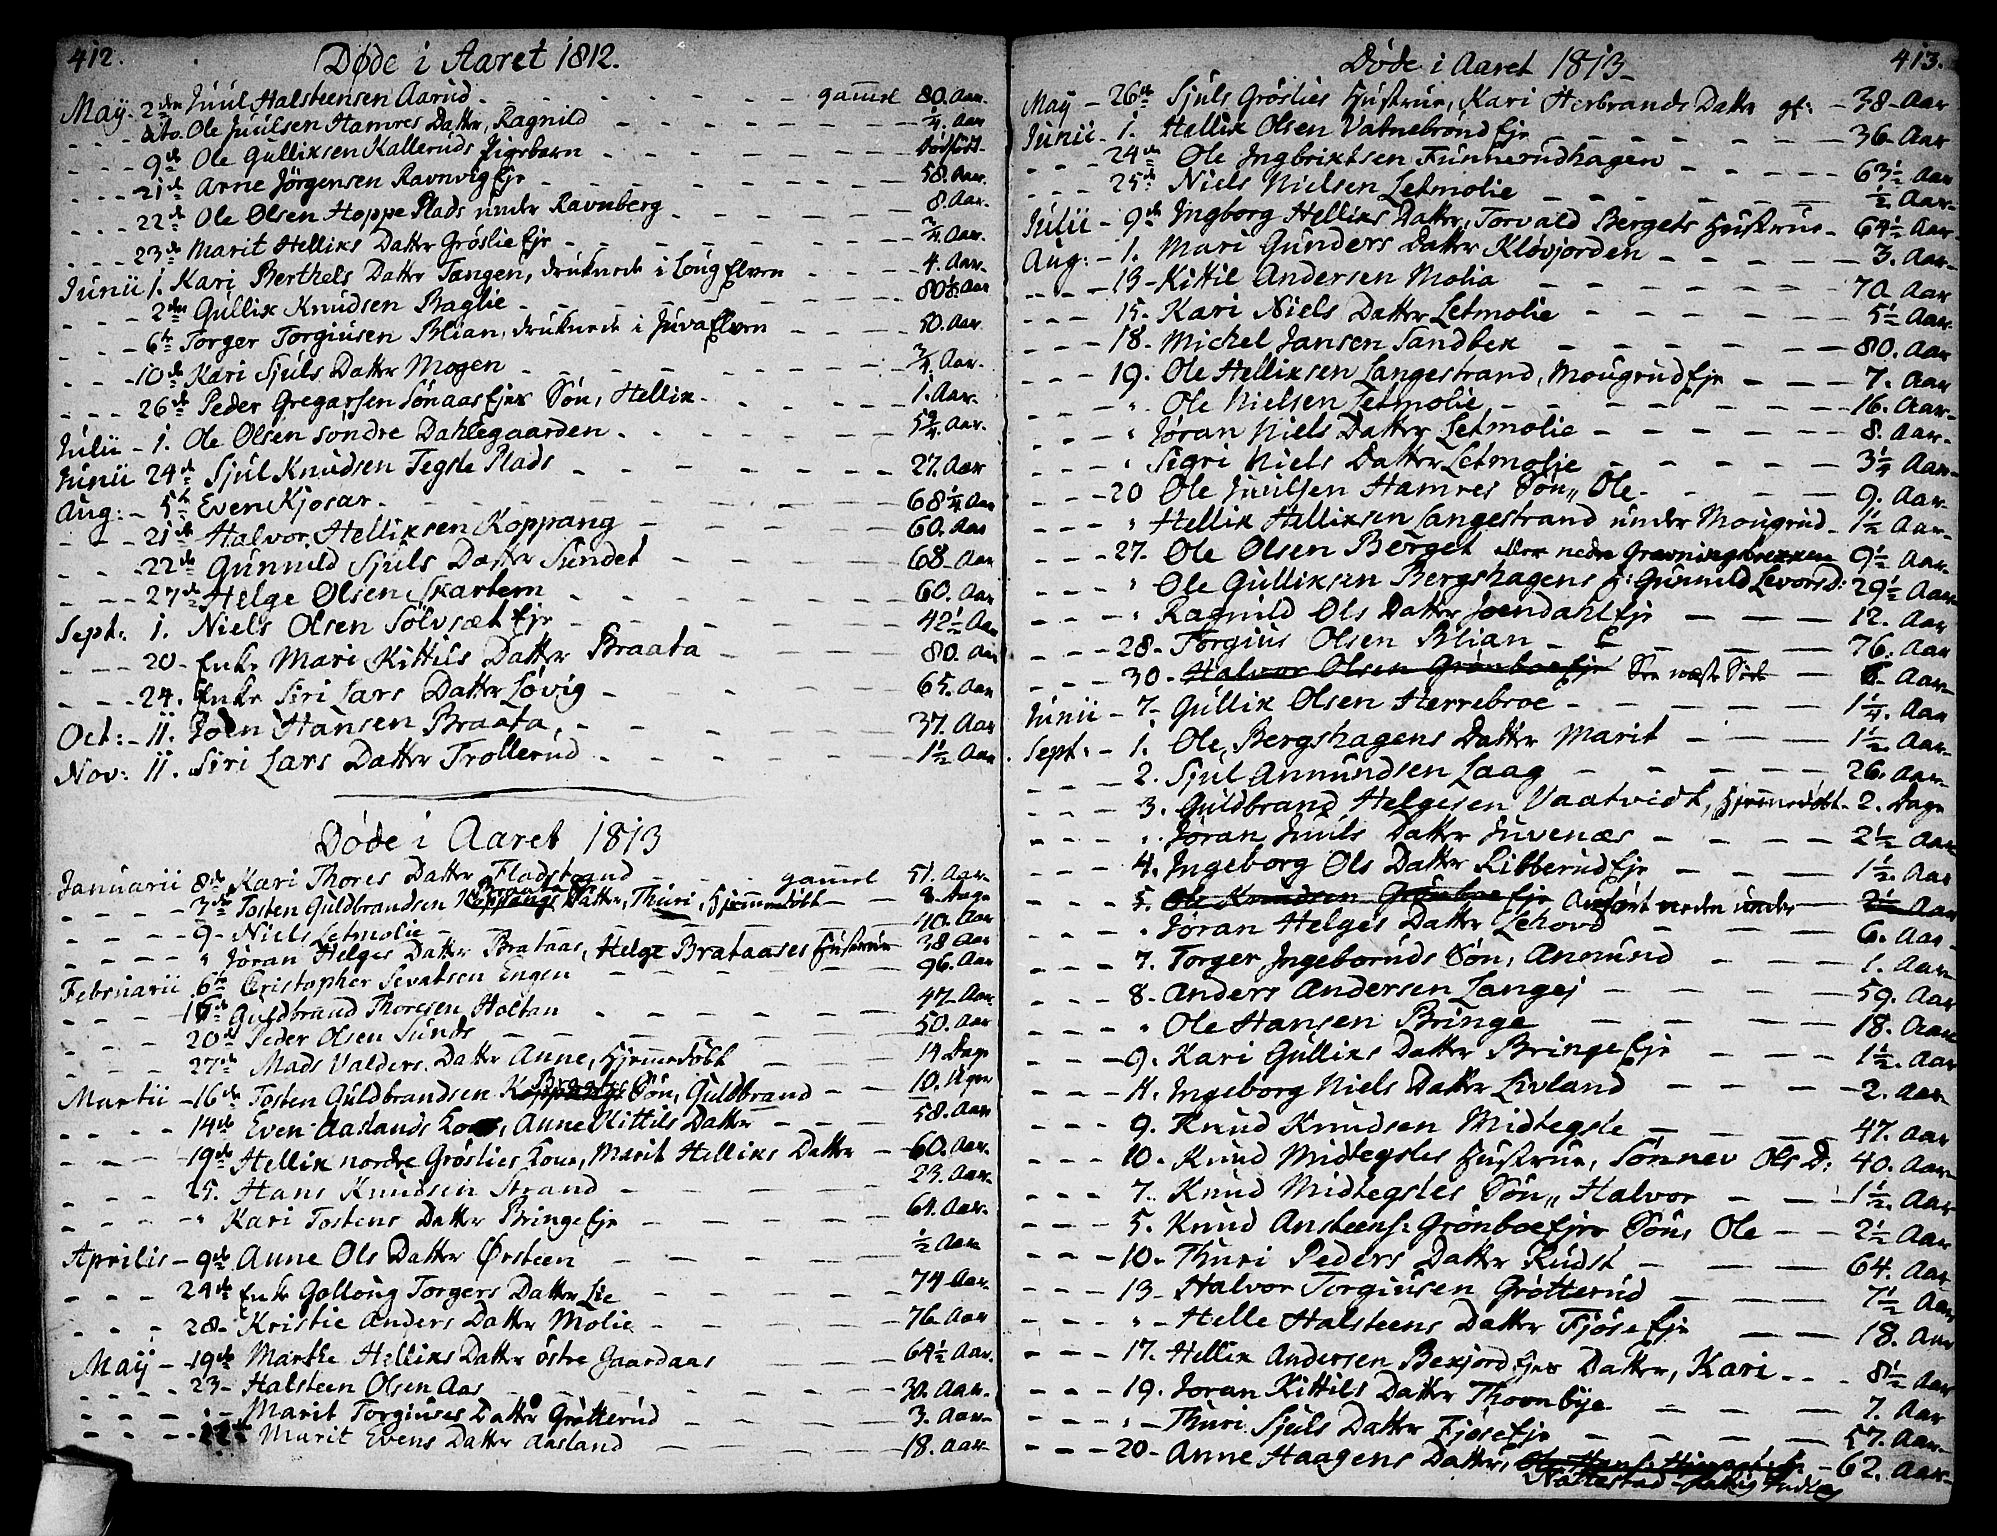 412.
Døde i Aaret 1812.
May - 2den Juul Halsteensen Aarud - - - gammel 80. Aar.
- - - dito. Ole Juulsen Hamres Datter, Ragnild - - - 1/4. Aar
- - - 9de Ole Gulliksen Kalleruds Pigebarn - - - dødfødt
- - - 21de Arne Jörgensen Ravnvig Eje - - - 58. Aar.
- - - 22de Ole Olsen Hoppe Plads under Ravnberg - - - 8. Aar.
- - - 23de Marit Helliks Datter Gröslie Eje - - - 3/4. Aar.
Junii 1. Kari Berthels Datter Tangen, druknede i Loug Elven - - - 4. Aar.
- - - 2den Gullik Knudsen Baglie - - - 80 1/2. Aar
- - - 6te Torger Torgiusen Blian, druknede i Juva Elven - - - 50. Aar.
- - - 10de Kari Sjuls Datter Mogen - - - 3/4. Aar.
- - - 26de Peder Gregarsen Sönaas Ejes Sön, Hellik - - - 1. Aar.
Julii - 1. Ole Olsen söndre Dahlegaarden - - - 5 3/4. Aar.
Junii 24de Sjul Knudsen Tegsle Plads - - - 27. Aar
Aug: - 5te Even Kjosar - - - 68 1/4 Aar
- - - 21de Halvor Helliksen Koppang - - - 60. Aar
- - - 22de Gunnild Sjuls Datter Sundet - - - 68. Aar
- - - 27de Helge Olsen Skartem - - - 60. Aar
Sept: 1. Niels Olsen Sölvsæt Eje - - - 42 1/2 Aar
- - - 20 - Enke Mari Kittils Datter Braata - - - 80. Aar
- - - 24. Enke Siri Lars Datter Lövig - - - 65. Aar
Oct: - 11. Joen Hansen Braata, - - - 37. Aar
Nov: 11. Siri Lars Datter Trollerud - - - 1 1/2 Aar
Døde i Aaret 1813
Januarii 8de Kari Thores Datter Fladstrand - - - gammel 51. Aar.
- - - 3die Tosten Guldbrandsen Koppangs Datter, Thuri, Hjemmedöbt - - 3 Dage
- - - 9 - Niels Letmolie - - - 40. Aar
- - - " Jöran Helges Datter Brataas, Helge Brataases Hustrue - 38 Aar
Februarii 6te Christopher Sevatsen Engen - - - 96. Aar
- - - 16de Guldbrand Thoresen Holtan - - - 47. Aar.
- - - 20de Peder Olsen Sunds - - - 50. Aar
- - - 27de Mads Valders. Datter Anne, Hjemmedöbt - - - 14 Dage
Martii - 16de Tosten Guldbrandsen Koppangs Sön, Guldbrand - - 10. Uger
- - - 14de Even Aaslands Kone, Anne Kittils Datter - - - 58. Aar
- - - 19de Hellik nordre Gröslies Kone, Marit Helliks Datter - - 60. Aar.
- - - 25. Hans Knudsen Strand - - - 23. Aar.
- - - " Kari Tostens Datter Bringe Eje - - - 64. Aar.
Aprilis - 9de Anne Ols Datter Örsteen - - - 1/2 Aar.
- - - 29de Enke Gollöug Torgers Datter Lie - - - 74 Aar.
- - - 28 - Kristie Anders Datter Molie - - - 76. Aar
May - 19de Marthe Helliks Datter östre Gaardaas - - - 64 1/2 Aar.
- - - 23 - Halsteen Olsen Aas - - - 30. Aar.
- - - " - Marit Torgiuses Datter Grötterud - - - 3. Aar.
- - - 22de Marit Evens Datter Aasland - - - 18. Aar.
413.
Døde i Aaret 1813 -
May - 26de Sjuls Gröslies Hustrue, Kari Herbrands Datter gl: - 38 - Aar
Junii - 1. Hellik Olsen Vatnebrönd Eje - - - 36. Aar
- - - 24de Ole Ingbriktsen Funnerudhagen - - - 63 1/2 Aar
- - - 25de Niels Nielsen Letmolie - - - 1/2 Aar.
Julii - 9de Ingborg Helliks Datter, Torvald Bergets Hustrue - 64 1/2 Aar.
Aug: - 1. Mari Gunders Datter Klovjorden - - - 3. Aar.
- - - 13 - Kittil Andersen Molia - - - 70. Aar
- - - 15. Kari Niels Datter Letmolie - - - 5 1/2 Aar.
- - - 18. Michel Jansen Sandbek - - - 80. Aar
- - - 19. Ole Helliksen Langestrand, Mougrud Eje - - - 7. Aar
- - - " Ole Nielsen Letmolie - - - 16. Aar.
- - - " Jöran Niels Datter Letmolie - - - 8. Aar.
- - - " Sigri Niels Datter Letmolie - - - 3 1/4 Aar.
- - - 20 Ole Juulsen Hamres Sön,, Ole - - - 9. Aar.
- - - " Hellik Helliksen Langestrand under Mougrud - 1 1/2 Aar.
- - - 27. Ole Olsen Berget eller nedre Gravningsbrekken 9 1/2 Aar
- - - " Ole Gulliksen Bergshagens H: Gunnild Levorsd: 29 1/2 Aar
- - - " Ragnild Ols Datter Joendahl Eje - - - 12. Aar
- - - 28 - Torgius Olsen Blian - - - 76. Aar
- - - 30 - Halvor Olsen Grönboe Eje See næste Side - - 6. Aar.
Junii - 7 - Gullik Olsen Herrebroe - - - 1 1/4. Aar
Sept: - 1. Ole Bergshagens Datter Marit - - - 1 1/2. Aar.
- - - 2. Sjul Anmundsen Laag - - - 26. Aar.
- - - 3. Guldbrand Helgesen Vaatvidt, Hjemmedöbt - 2. Dage
- - - " Jöran Juuls Datter Juvenæs - - - 2 1/2 Aar
- - - 4. Ingeborg Ols Datter Libberud Eje - - - 1 1/2. Aar
- - - 5. Ole Knudsen Grönboe Eje Anfört neden under - - 2 1/2 Aar
- - - " Jöran Helges Datter Lehovd - - - 6. Aar.
- - - 7. Torger Ingeboruds Sön, Anmund - - - 1. Aar.
- - - 8 - Anders Andersen Langej - - - 59. Aar
- - - " Ole Hansen Bringe - - - 18. Aar
- - - 9. Kari Gulliks Datter Bringe Eje - - - 1 1/2. Aar
- - - 11. Ingeborg Niels Datter Livland - - - 2. Aar.
- - - 9. Knud Knudsen Midtegsle - - - 47. Aar
- - - 10 - Knud Midtegsles Hustrue, Sönnev Ols D: 40. Aar.
- - - 7 - Knud Midtegsles Sön,, Halvor - - - 1 1/2. Aar
- - - 5. Knud Ansteens: Grönboe Ejes Söns Ole - - 2 1/2 Aar
- - - 10 - Thuri Peders Datter Rudst - - - 64. Aar
- - - 13 - Halvor Torgiusen Grötterud - - - 7 1/2 Aar
- - - " - Helle Halsteens Datter Fjöse Eje - - - 18. Aar
- - - 17. Hellik Andersen Bekjord Ejes Datter, Kari - - - 8 1/2 Aar
- - - 19. Joran Kittils Datter Thoenbye - - - 7. Aar
- - - " - Thuri Sjuls Datter Fjöse Eje - - - 57. Aar.
- - - 20 - Anne Haagens Datter, - 62. Aar.
Nattestad